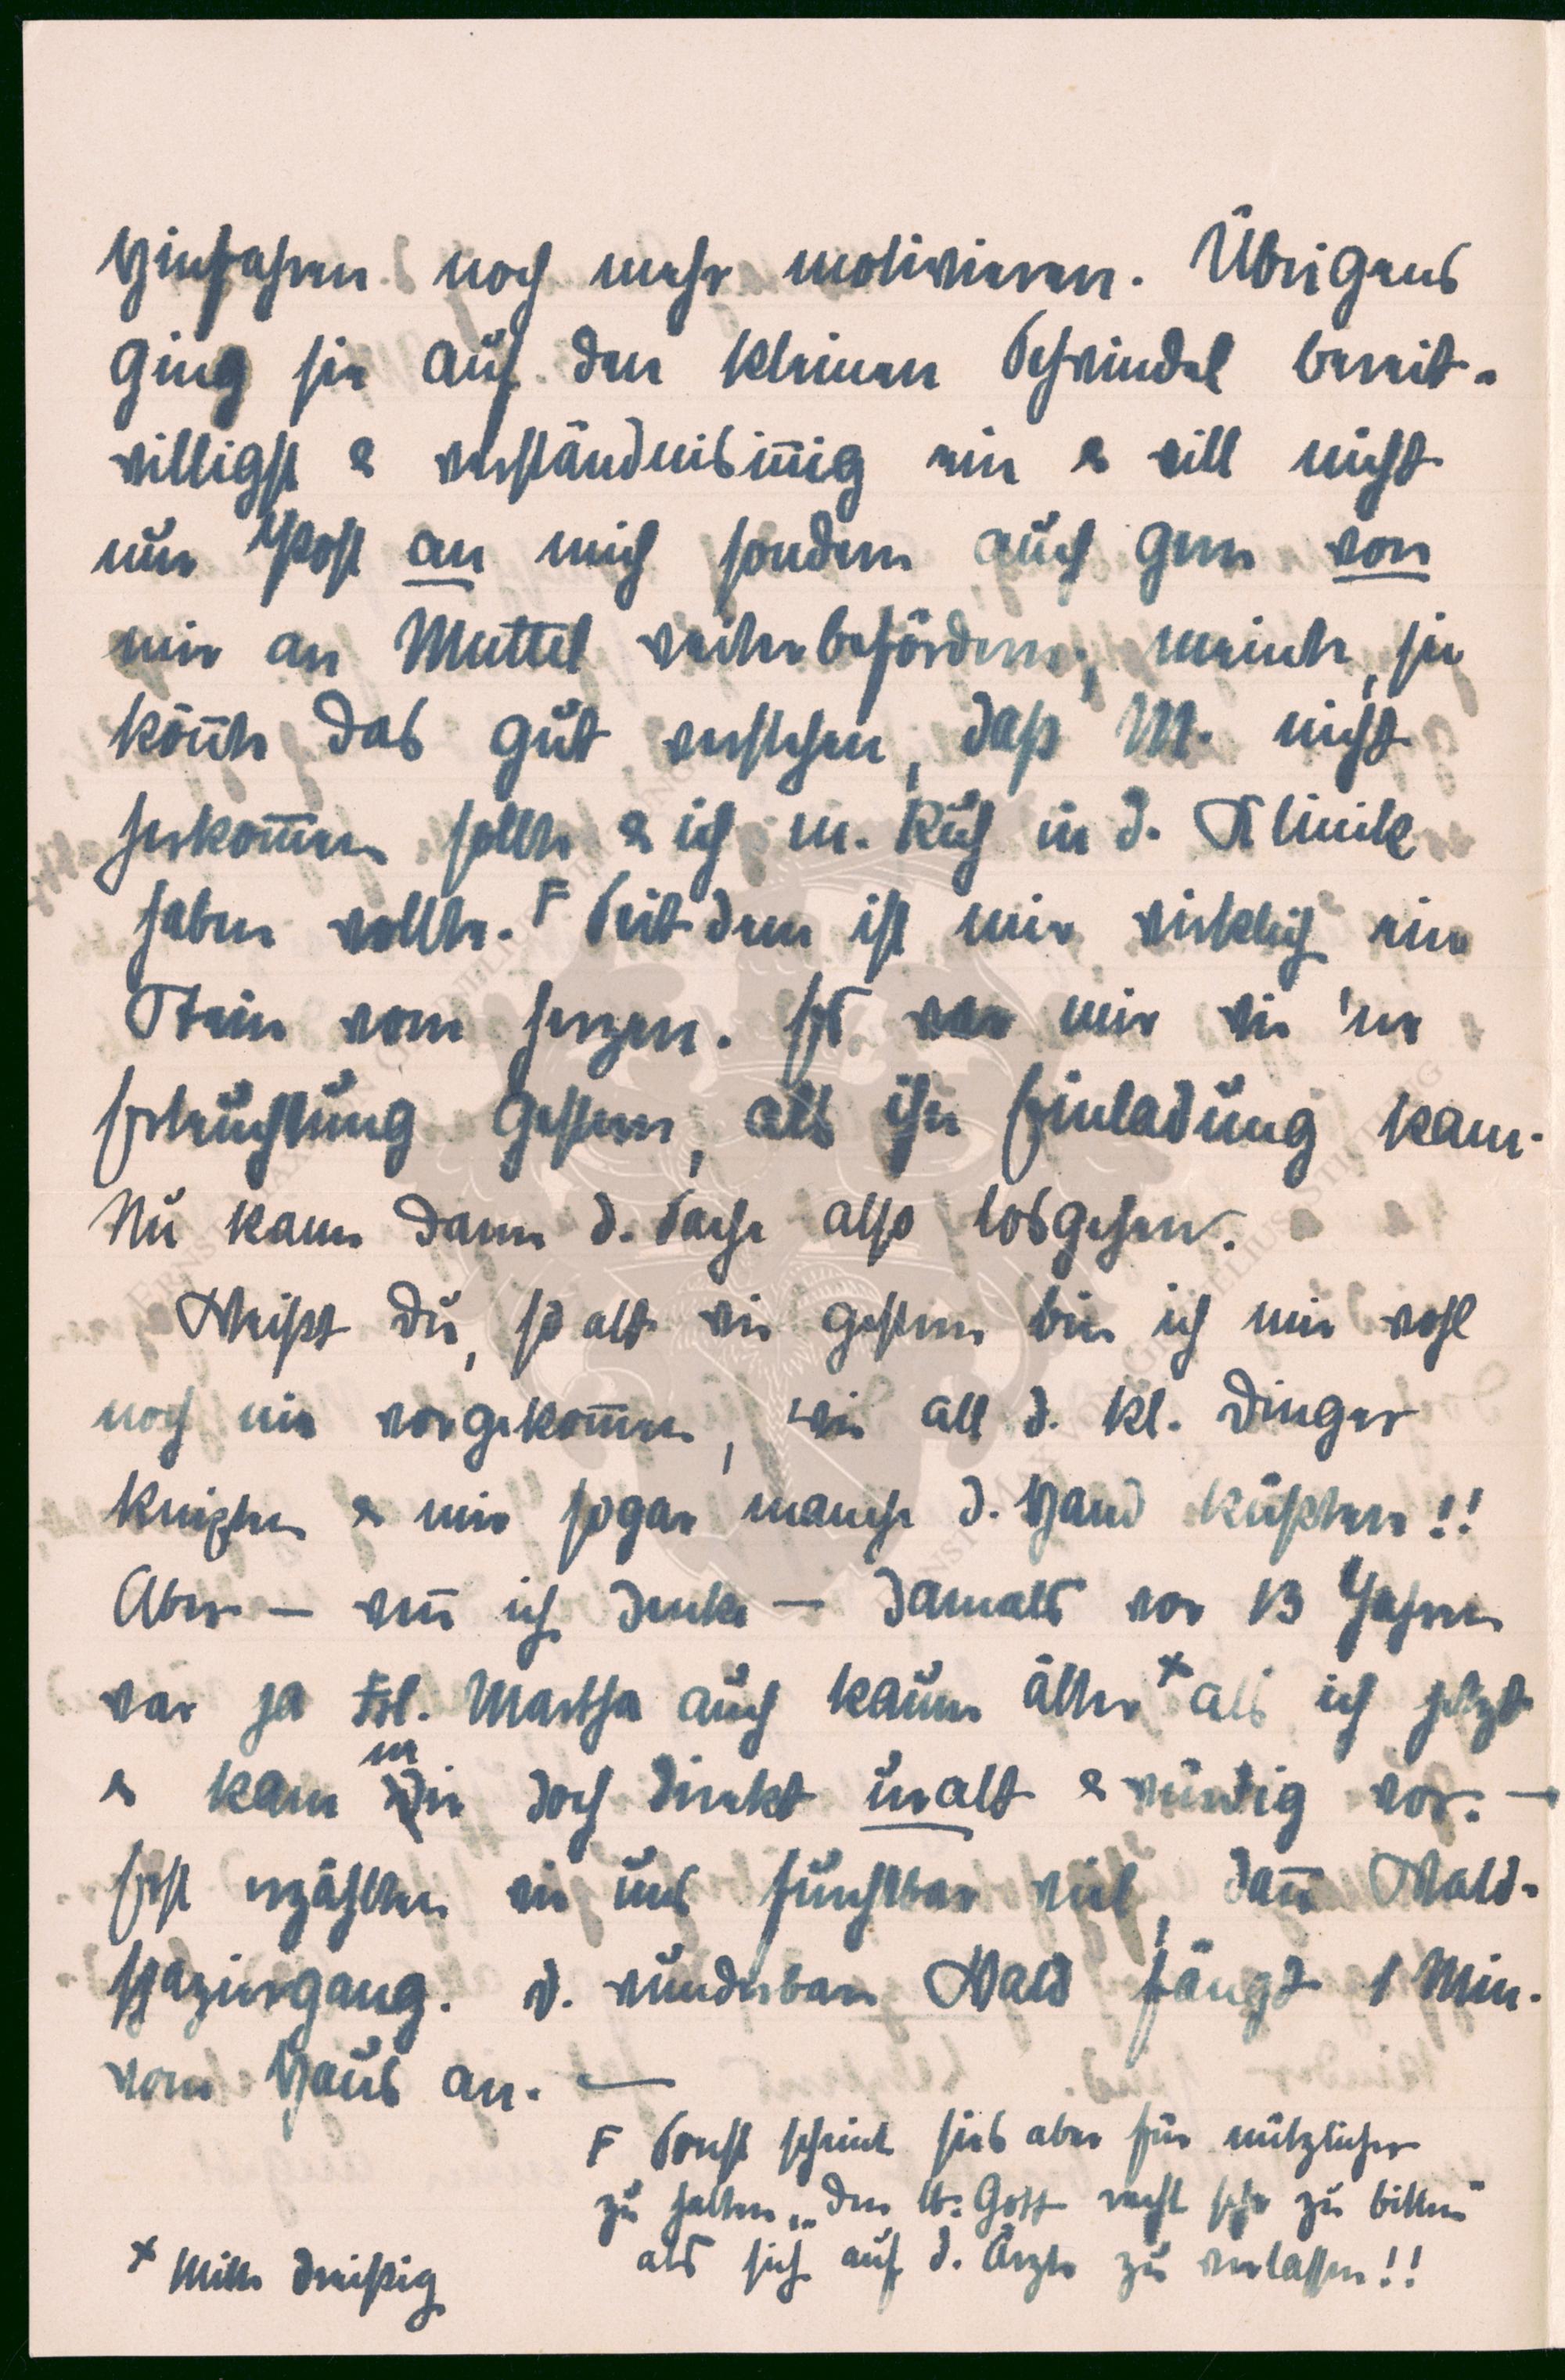 Hinfahren noch mehr motivieren. Übrigens
ging sie auf den kleinen Schwindel bereit-
willigst & verständnisinnig ein & will nicht
nur Post an mich sondern auch gern von
mir an Muttel weiterbefördern, meinte, sie
könnte das gut verstehen, daß M. nicht
herkommen sollte & ich m. Ruh in d. Klinik
haben wollte. F Seitdem ist mir wirklich ein
Stein vom Herzen. Es war mir wie 'ne
Erleuchtung gestern, als ihre Einladung kam.
Nu kann dann d. Sache also losgehen.
Weißt Du, so alt wie gestern bin ich mir wohl
noch nie vorgekommen, wie all d. kl. Dinger
knixten & mir sogar manche d. Hand küßten!!
Aber – wenn ich denke – damals vor 13 Jahren
war ja Frl. Martha auch kaum älter x als ich jetzt
& kam mir doch direkt uralt & würdig vor. –
Erst erzählten wir uns furchtbar viel, dann Wald-
spaziergang. D. wunderbare Wald fängt 1 Min.
vom Haus an. —
F Sonst scheint sies aber für nützlicher
zu halten „den lb. Gott recht sehr zu bitten“
als sich auf d. Ärzte zu verlassen!!
x Mitte dreißig